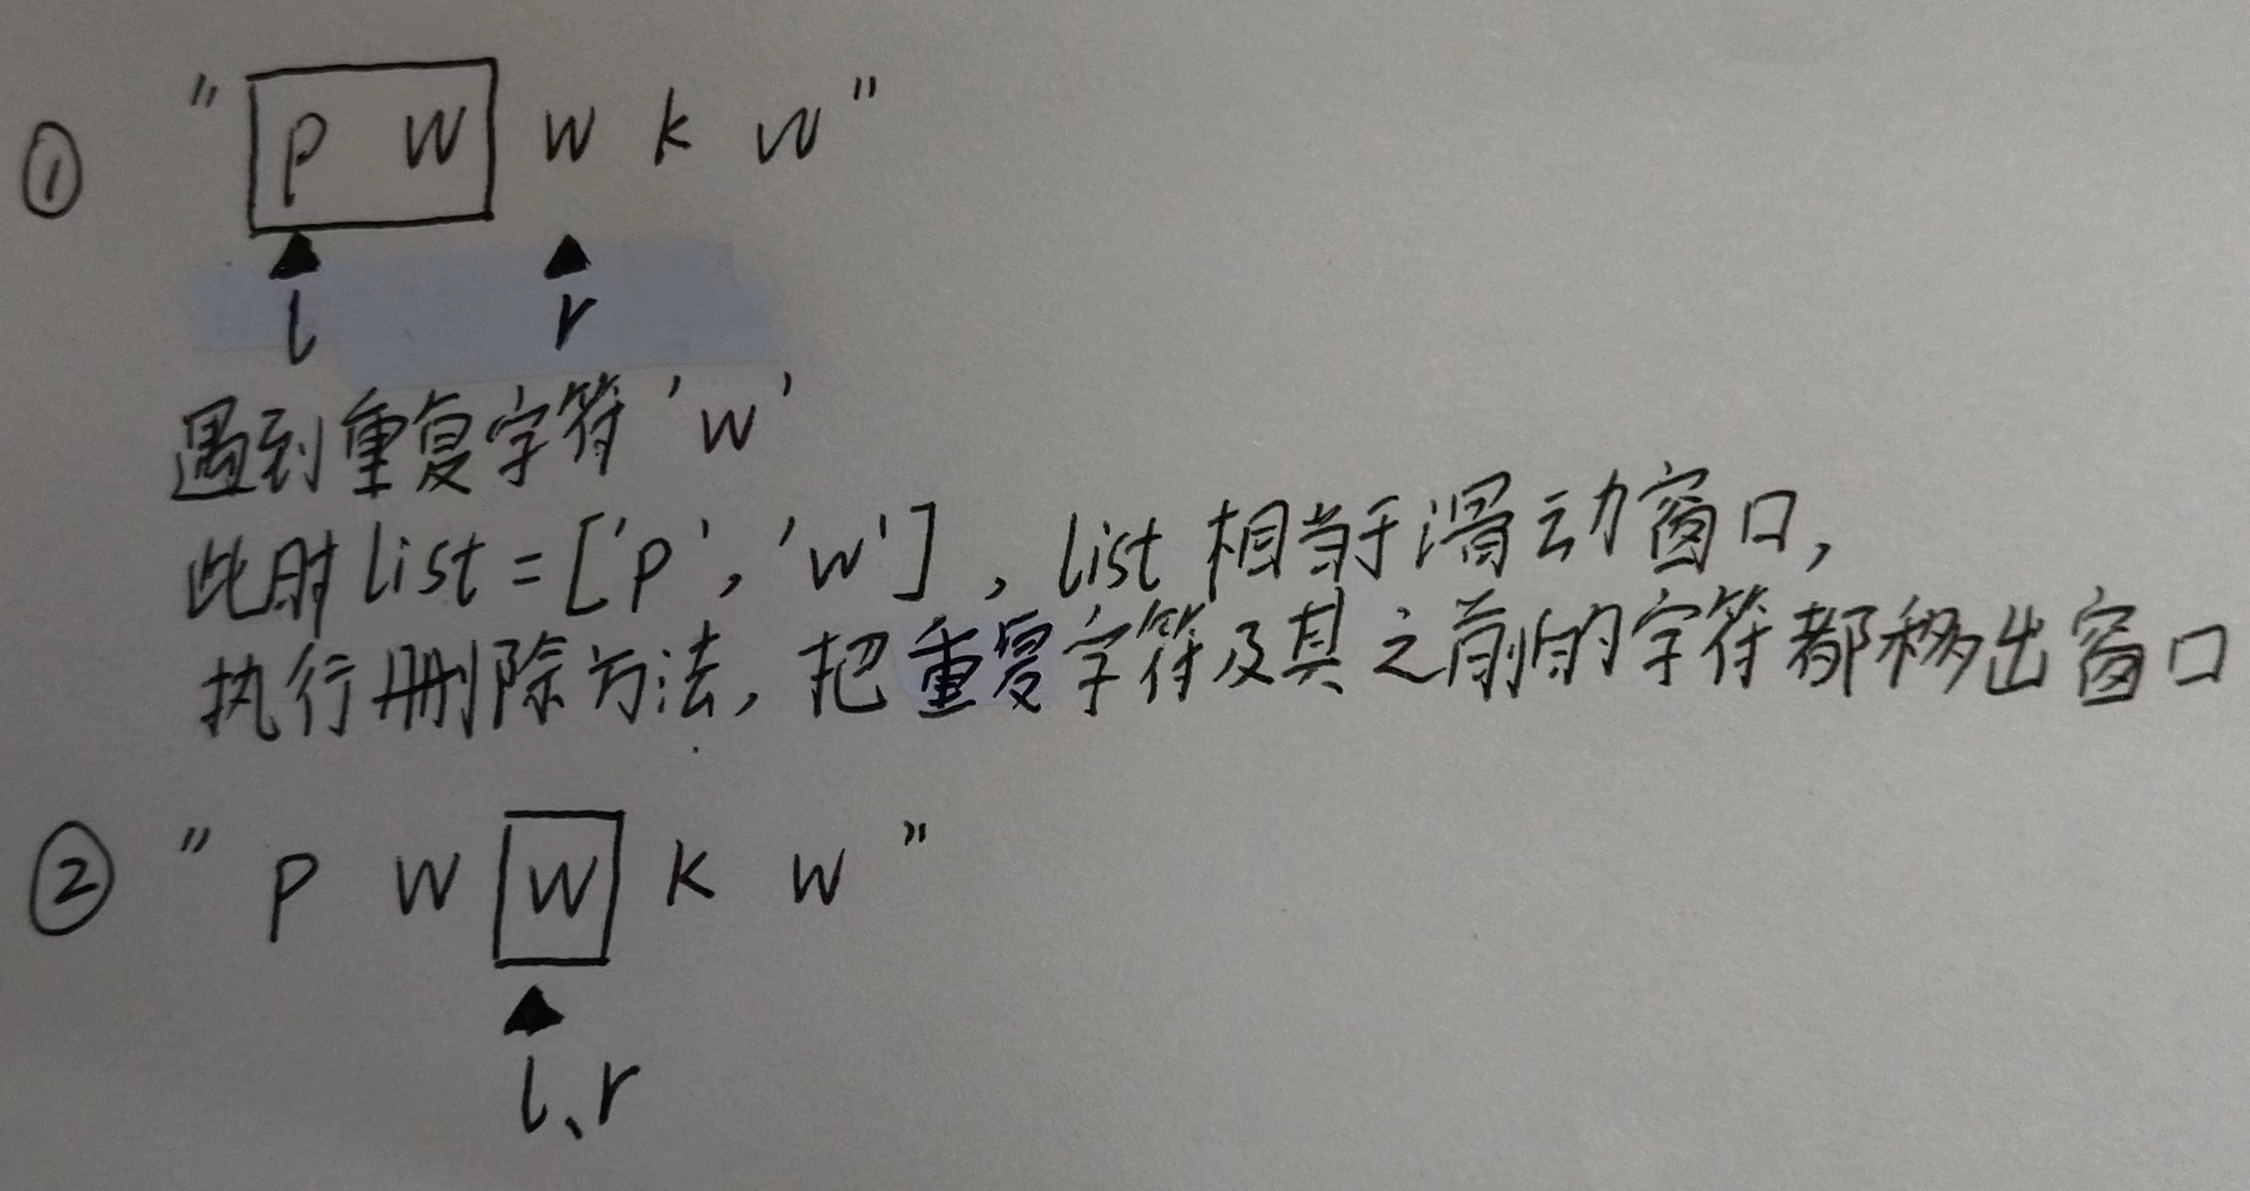 ① "p w w k w"
l r
遇到重复字符'w'
此时list=['p','w'],list相当于滑动窗口,
执行删除方法,把重复字符及其之前的字符都移出窗口
② "p w w k w"
l、r